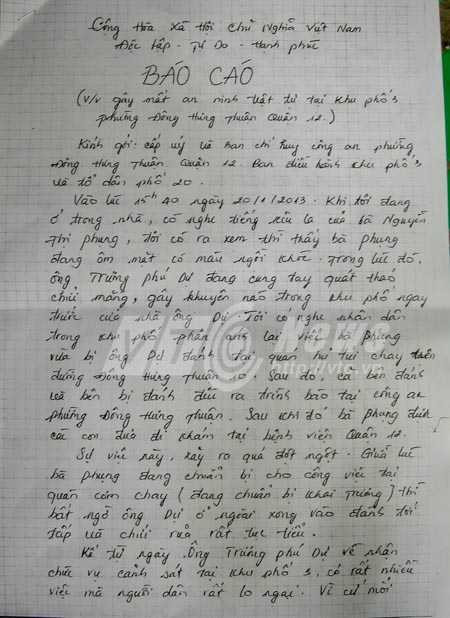 Cộng Hòa Xã Hội Chủ Nghĩa Việt Nam
Độc Lập - Tự Do - Hạnh phúc
BÁO CÁO
(v/v gây mất an ninh trật tự tại Khu phố 3
phường Đông Hưng Thuận Quận 12.)
Kính gởi: cấp uỷ và ban chỉ huy công an phường
Đông Hưng Thuận Quận 12. Ban điều hành khu phố 3
và tổ dân phố 20.
Vào lúc 15h 40 ngày 20/1/2013. Khi tôi đang
ở trong nhà, có nghe tiếng kêu la của bà Nguyễn
Thị Phụng, tôi có ra xem thì thấy bà Phụng
đang ôm mặt có máu ngồi khóc. Trong lúc đó,
ông Trương Phú Dự đang cung tay quát tháo
chửi mắng, gây khuyên náo trong khu phố ngay
trước cửa nhà ông Dự. Tôi có nghe nhân dân
trong khu phố phản ánh lại việc bà Phụng
vừa bị ông Dự đánh tại quán hủ tiu chay trên
đường Đông Hưng Thuận Sau đó, cả bên đánh
và bên bị đánh đều ra trình báo tại công an
phường Đông Hưng Thuận. Sau khi đó bà Phụng được
các con đưa đi khám tại bệnh viện Quận 12.
Sự việc này, xảy ra quá đột ngột. Giữa lúc
bà Phụng đang chuẩn bị cho công việc tại
quán cơm chay (đang chuẩn bị khai trương) thì
bất ngờ ông Dự ở ngoài xong vào đánh tới
tấp và chửi rủa rất tục tiểu.
Kể từ ngày Ông Trương Phú Dự về nhận
chức vụ cảnh sát tại khu phố 3, có rất nhiều
việc mà người dân rất lo ngại. Vì cứ mỗi
VTC News
http://vtc.vn